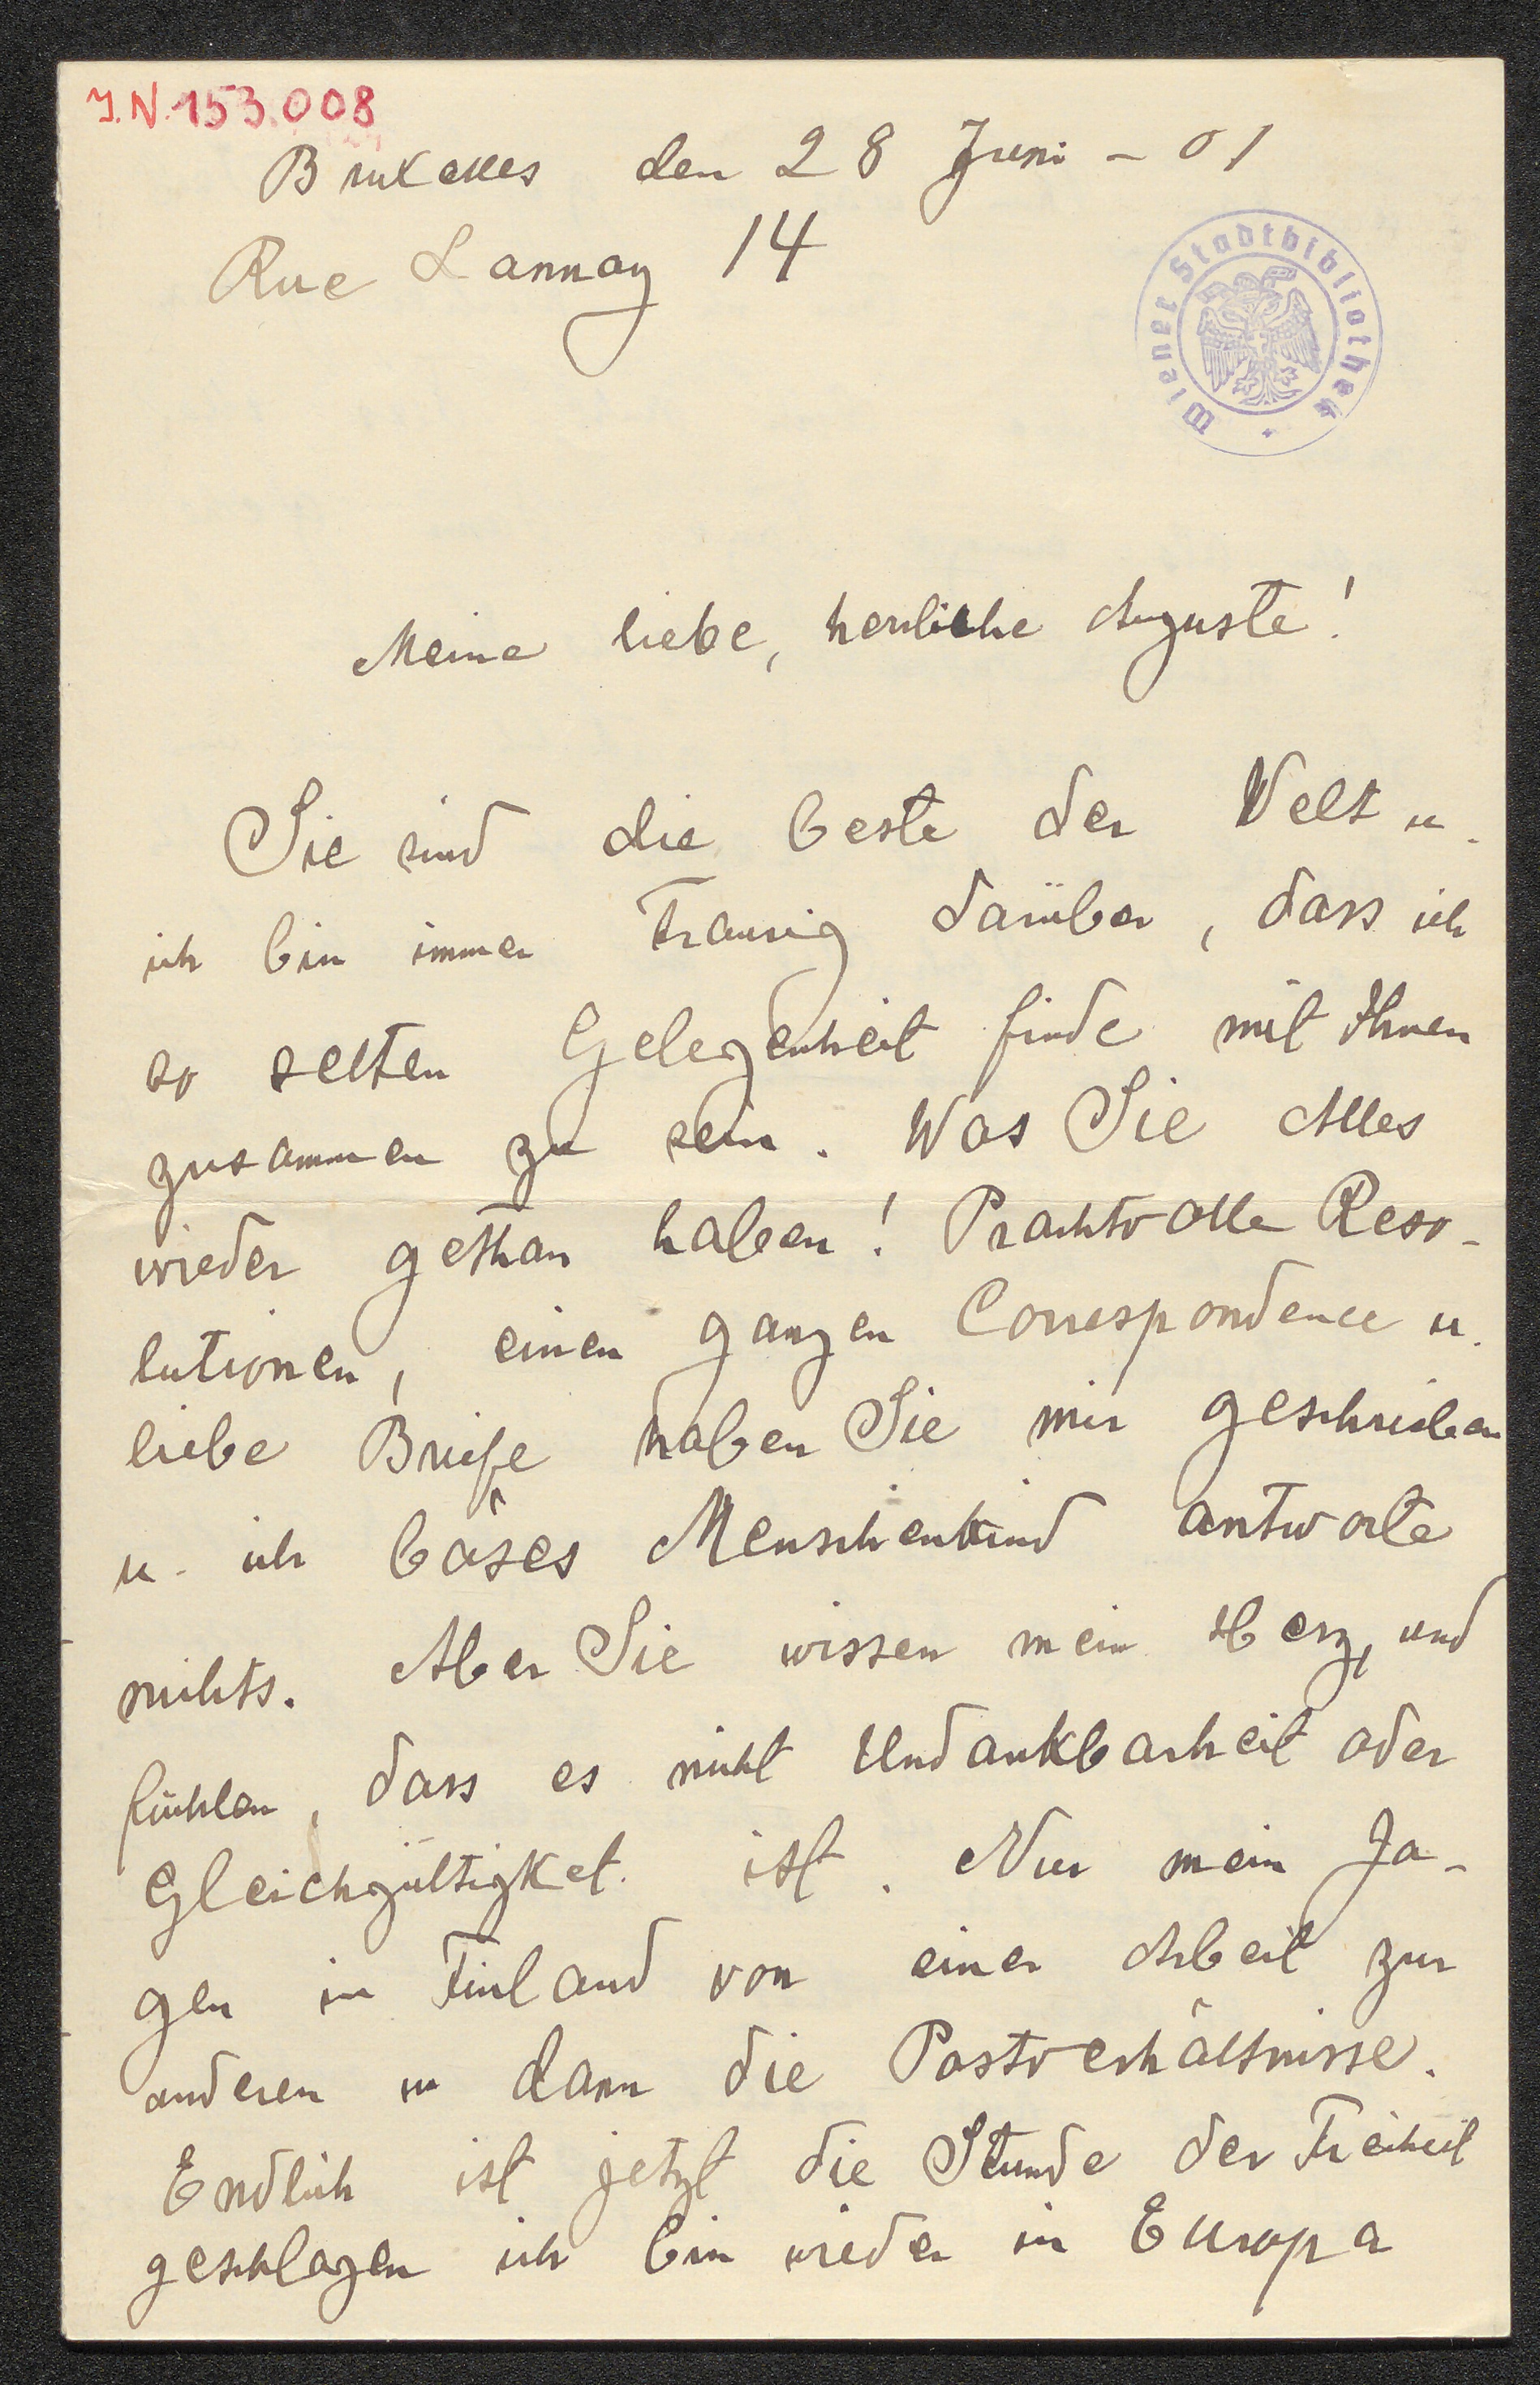 J.N. 153.008
Bruxelles den 28 Juni - 01
Rue Lannoy 14
Wiener Stadtbibliothek
Meine liebe, herrliche Auguste!
Sie sind die beste der Welt u.
ich bin immer traurig darüber, dass ich
so selten Gelegenheit finde mit Ihnen
zusammen zu sein. Was Sie Alles
wieder gethan haben! Prachtvolle Reso-
lutionen, einen ganzen Correspondence u.
liebe Briefe haben Sie mir geschrieben
u. ich böses Menschenkind antworte
nichts. Aber Sie wissen mein Herz, und
fühlen, dass es nicht Undankbarheit oder
Gleichgültigket. ist. Nur mein Ja-
gen in Finland von einer Arbeit zur
anderen u dann die Postverhältnisse.
Endlich ist jetzt die Stunde der Freiheit
geschlagen ich bin wieder in Europa